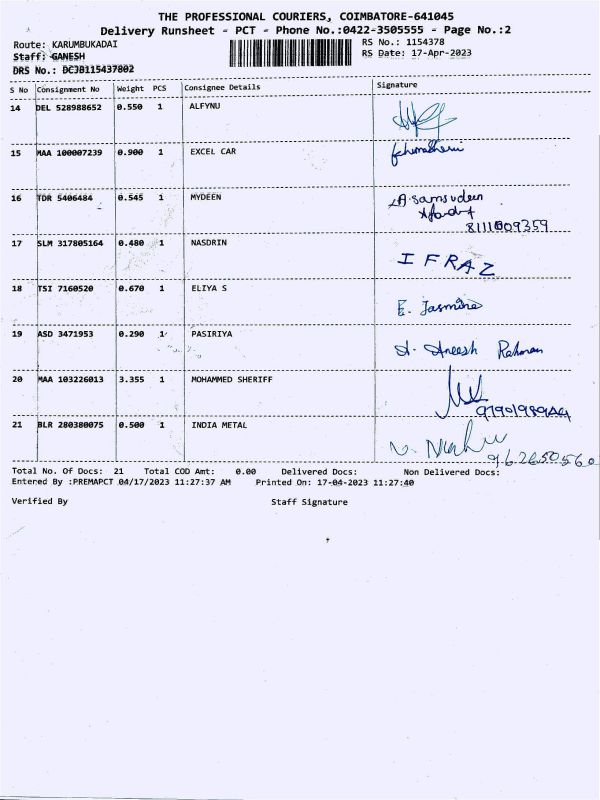 THE PROFESSIONAL COURIERS, COIMBATORE-641045
Delivery Runsheet - PCT - Phone No.:0422-3505555 - Page No.:2
Route: KARUMBUKADAI RS No.: 1154378
Staff: GANESH RS Date: 17-Apr-2023
DRS No.: DCJB115437802
S No Consignment No Weight PCS Consignee Details Signature
14 DEL 528988652 0.550 1 ALFYNU
15 MAA 100007239 0.900 1 EXCEL CAR
16 TDR 5406484 0.545 1 MYDEEN A. Samsudeen
8111009359
17 SLM 317805164 0.480 1 NASDRIN IFRAZ
18 TSI 7160520 0.670 1 ELIYA S E. Jasmine
19 ASD 3471953 0.290 1 PASIRIYA A. Aneesh Rahman
20 MAA 103226013 3.355 1 MOHAMMED SHERIFF
21 BLR 280380075 0.500 1 INDIA METAL
962650560
Total No. Of Docs: 21 Total COD Amt: 0.00 Delivered Docs: Non Delivered Docs:
Entered By :PREMAPCT 04/17/2023 11:27:37 AM Printed On: 17-04-2023 11:27:40
Verified By Staff Signature